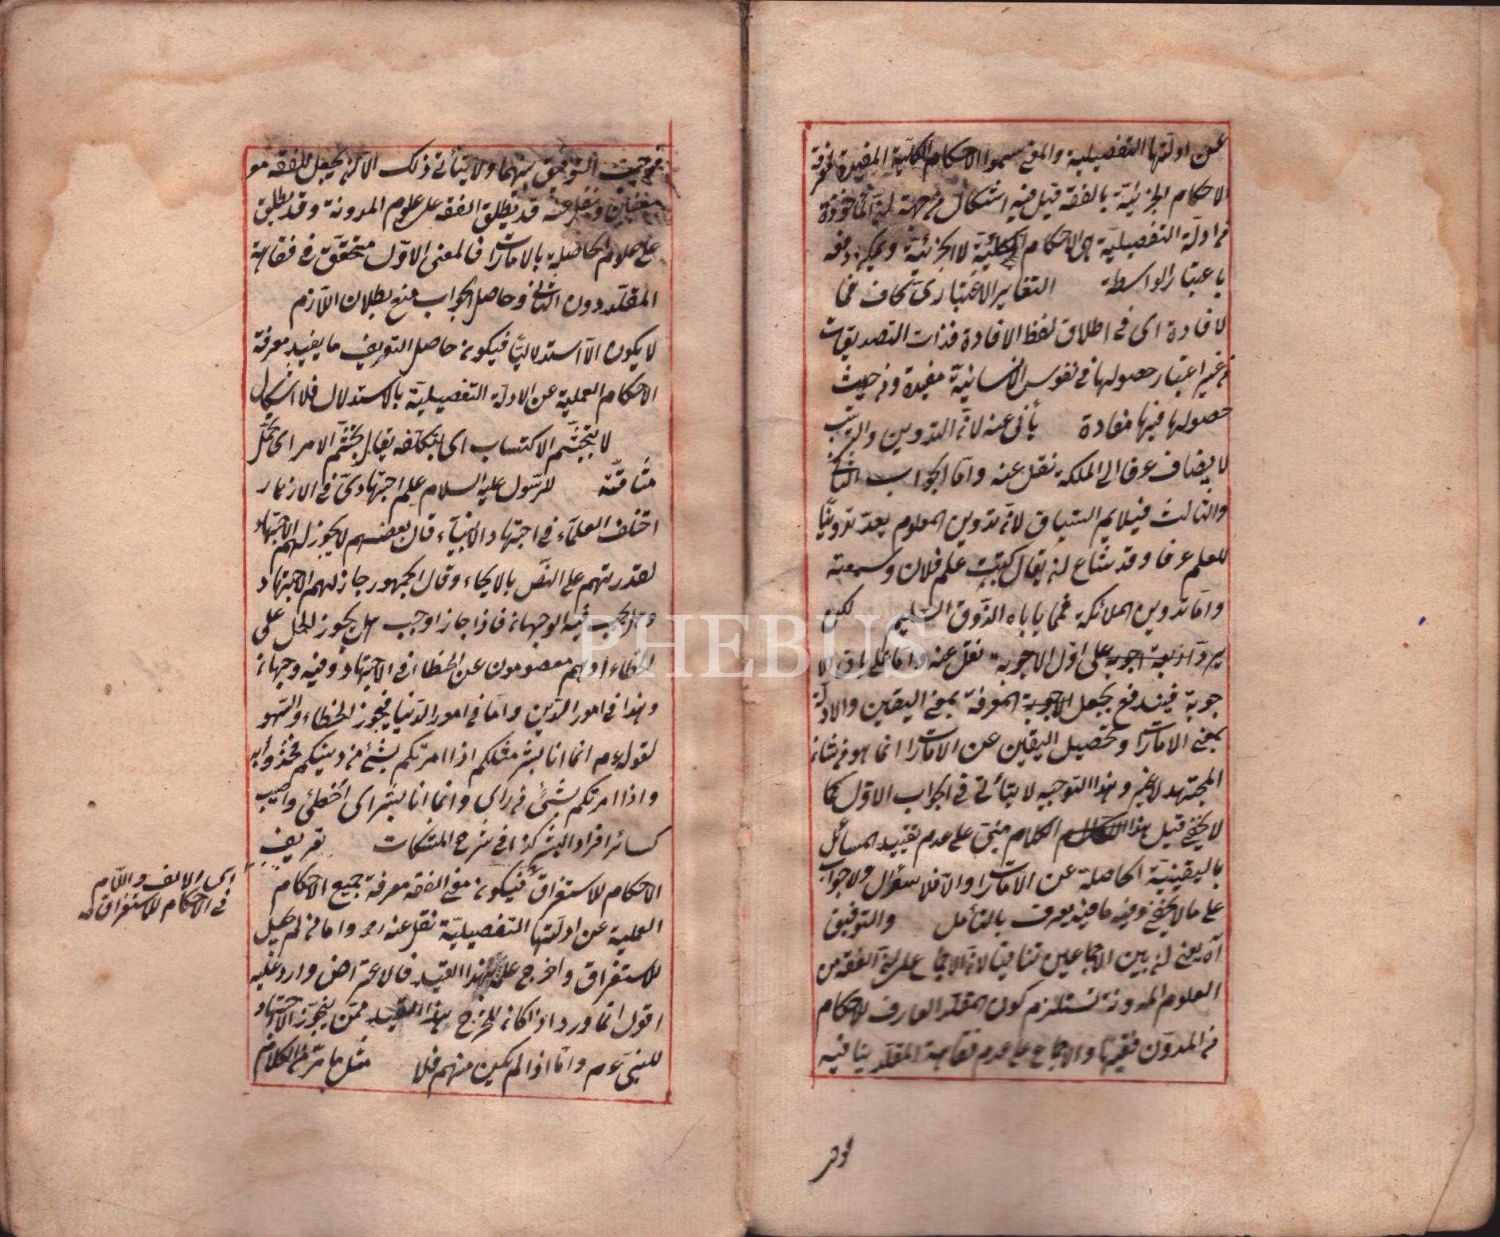 عن ادلتها التفصيلية والمعنى سموا الاحكام الكلية المفيدة لمعرفة
الاحكام الجزئية بالفقه قيل فيه اشكال من جهة ان المأخوذة
من ادلة التفصيلية هي الاحكام الكلية لا الجزئية ويمكن دفعه
باعتبار الواسطة التغاير الاعتبارى كاف فما
لافادة اى فى اطلاق لفظ الافادة فذات التصديقات
من غير اعتبار حصولها فى نفوس الانسانية مفيدة ومن حيث
حصولها فيها مفادة يأبى عنه لان التدوين والترتيب
لا يضاف عرفا الى الملكة نقل عنه واما الجواب الثانى
والثالث فيلايم السياق لان تدوين المعلوم يعد تدوينا
للعلم عرفا وقد شاع ان يقال كتبت علم فلان وسمعته
واما تدوين الملكة فما ياباه الذوق السليم لكن
يرد اربعة اجوبة على اول الاجوبة نقل عنه واما على باقى الا
جوبة فيندفع بجعل المعرفة بمعنى اليقين والادلة
بمعنى الامارات وتحصيل اليقين عن الامارات انما هو من شان
المجتهد لا غير وهذا التوجيه لا يتأتى فى الجواب الاول كما
لا يخفى قيل هذا الكلام مبنى على عدم تقييد المسائل
باليقينية الحاصلة عن الامارات والا فلا سؤال ولا جواب
على ما لا يخفى وفيه ما فيه يعرف بالتأمل والتوفيق
آه يعنى ان بين الاجماعين تنافيا لان الاجماع على ان الفقه من
العلوم المدونة تستلزم كون المقلد العارف للاحكام
من المدون فقيها والاجماع على عدم فقاهة المقلد ينافيه
التوفيق بينهما ولا يتأتى ذلك الا لان يجعل للفقه معنى
قد يطلق الفقه على علوم المدونة وقد يطلق
على علوم الحاصلة بالامارات فالمعنى الاول متحقق فى فقاهة
المقلد دون الثانى وحاصل الجواب منع بطلان اللازم
لا يكون الا استدلاليا فيكون حاصل التعريف ما يفيد معرفة
الاحكام العملية عن الادلة التفصيلية بالاستدلال فلا اشكال
لا بتجشم الاكتساب اى بتكلفه يقال تجشم الامر اى تحمل
مشاقته للرسول عليه السلام علم اجتهادى فى الازهار
اختلف العلماء فى اجتهاد الانبياء قال بعضهم لا يجوز لهم الاجتهاد
لقدرتهم على النص بالايحاء وقال الجمهور جاز لهم الاجتهاد
وهل يجب فيه الوجهان فاذا جاز او وجب هل يجوز للحل على
الخطاء او هم معصومون عن الخطاء فى الاجتهاد وفيه وجهان
وهذا فى امور الدين واما فى امور الدنيا فيجوز الخطاء والسهو
لقوله عم انما انا بشر مثلكم اذا امرتكم بشئ من دينكم فخذوا به
واذا امرتكم بشئ من راى وانما انا بشر اى اخطئ واصيب
كسائر افراد البشر كذا فى شرح المشكات تعريف
الاحكام للاستغراق فيكون معنى الفقه معرفة جميع الاحكام
العملية عن ادلتها التفصيلية نقل عنه رحـ واما من لم يحمل
للاستغراق واخرج علمه بهذا القيد فالاعتراض وارد عليه
اقول انما ورد اذا كان المخرج بهذا القيد ممن يجوز الاجتهاد
للنبى عم واما اذا لم يكن منهم فلا مثل ما مر من الكلام
اى الالف واللام
فى الاحكام للاستغراق